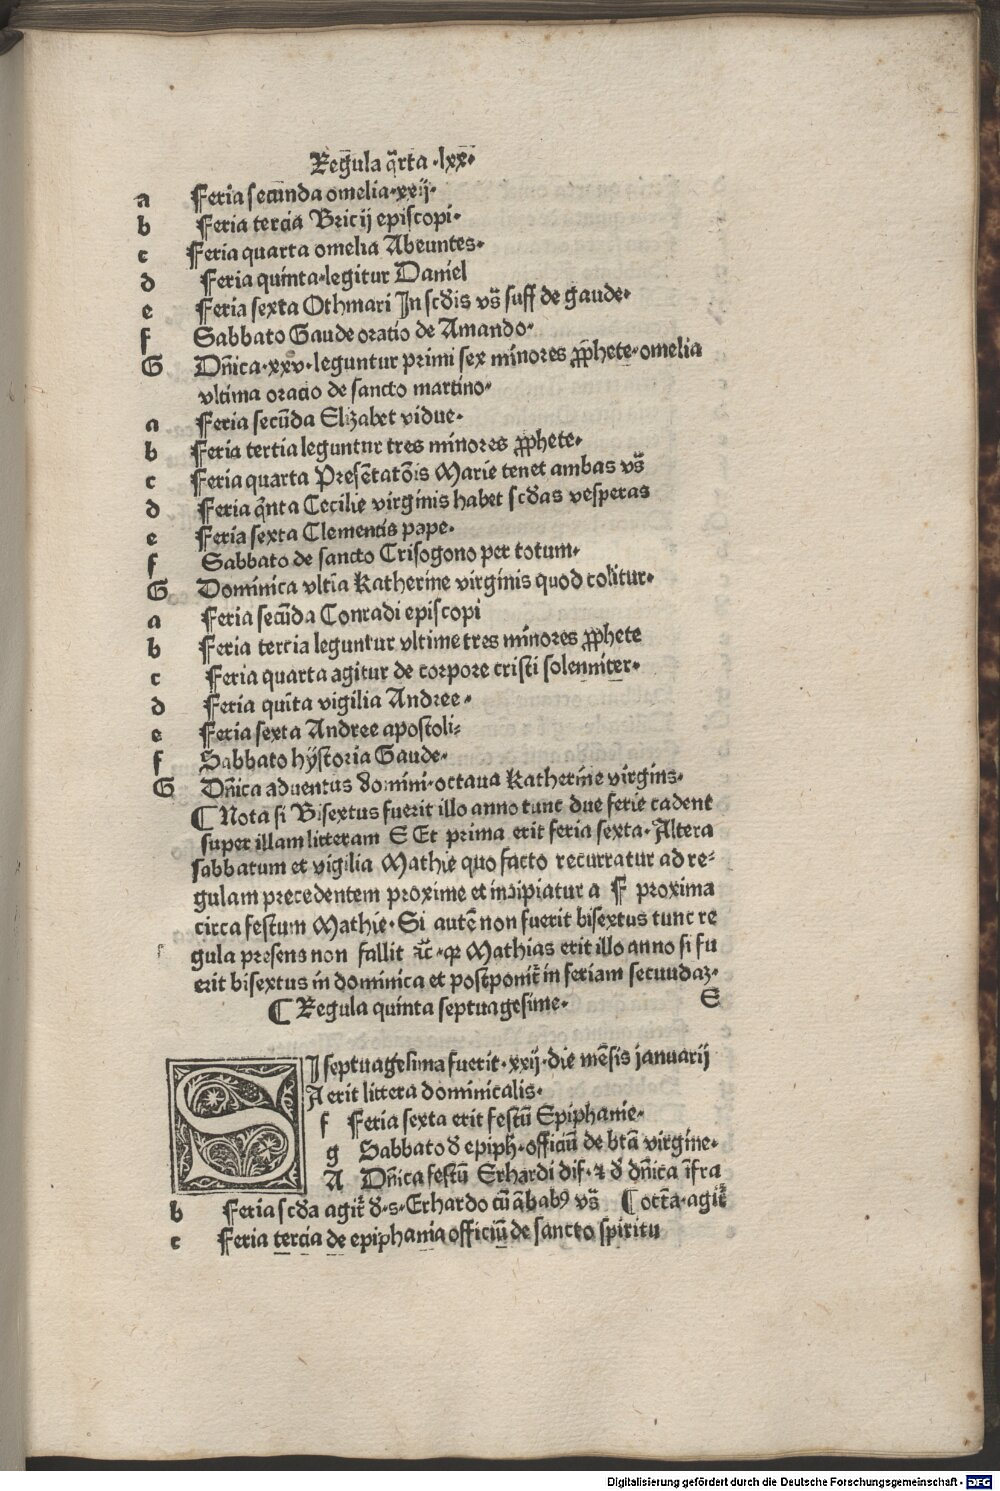 Regula q̄rta .lxx.
a Feria secunda omelia.xxij.
b Feria tercia Bricij episcopi.
c Feria quarta omelia Abeuntes.
d Feria quinta.legitur Daniel
e Feria sexta Othmari In scd̄is vs̄ suff de gaude.
f Sabbato Gaude oratio de Amando.
G Dn̄ica.xxv.leguntur primi sex minores ꝓphete.omelia
vltima oracio de sancto martino.
a Feria secūda Elizabet vidue.
b Feria tertia leguntur tres minores ꝓphete.
c Feria quarta Presētatōis Marie tenet ambas vs̄
d Feria q̄nta Cecilie virginis habet scd̄as vesperas
e Feria sexta Clementis pape.
f Sabbato de sancto Crisogono per totum.
G Dominica vltīa Katherine virginis quod colitur.
a Feria secūda Conradi episcopi
b Feria tercia leguntur vltime tres minores ꝓphete
c Feria quarta agitur de corpore cristi solenniter.
d Feria quīta vigilia Andree.
e Feria sexta Andree apostoli:
f Sabbato hÿstoria Gaude.
G Dn̄ica aduentus domini.octaua Katherine virgins.
¶ Nota si Bisextus fuerit illo anno tunc due ferie cadent
super illam litteram S Et prima erit feria sexta.Altera
sabbatum et vigilia Mathie quo facto recurratur ad re⸗
gulam precedentem proxime et incipiatur a F proxima
circa festum Mathie.Si autē non fuerit bisextus tunc re
gula presens non fallit ꝛc̄.qꝛ Mathias erit illo anno si fu
erit bisextus in dominica et postponit᷑ in feriam secundaꝫ.
¶ Regula quinta septuagesime. S
SI septuagesima fuerit.xxij.die mēsis januarij
A erit littera dominicalis.
f Feria sexta erit festū Epiphanie.
g Sabbato d̄ epiph̄.officiū de btā virgine.
A Dn̄ica festū Erhardi dif.⁊ d̄ dn̄ica īfra
b Feria scd̄a agit᷑ d̄.s.Erhardo cū ābabꝰ vs̄ ¶ octā.agit᷑
c Feria tercia de epiphania officiū de sancto spiritu
Digitalisierung gefördert durch die Deutsche Forschungsgemeinschaft - DFG